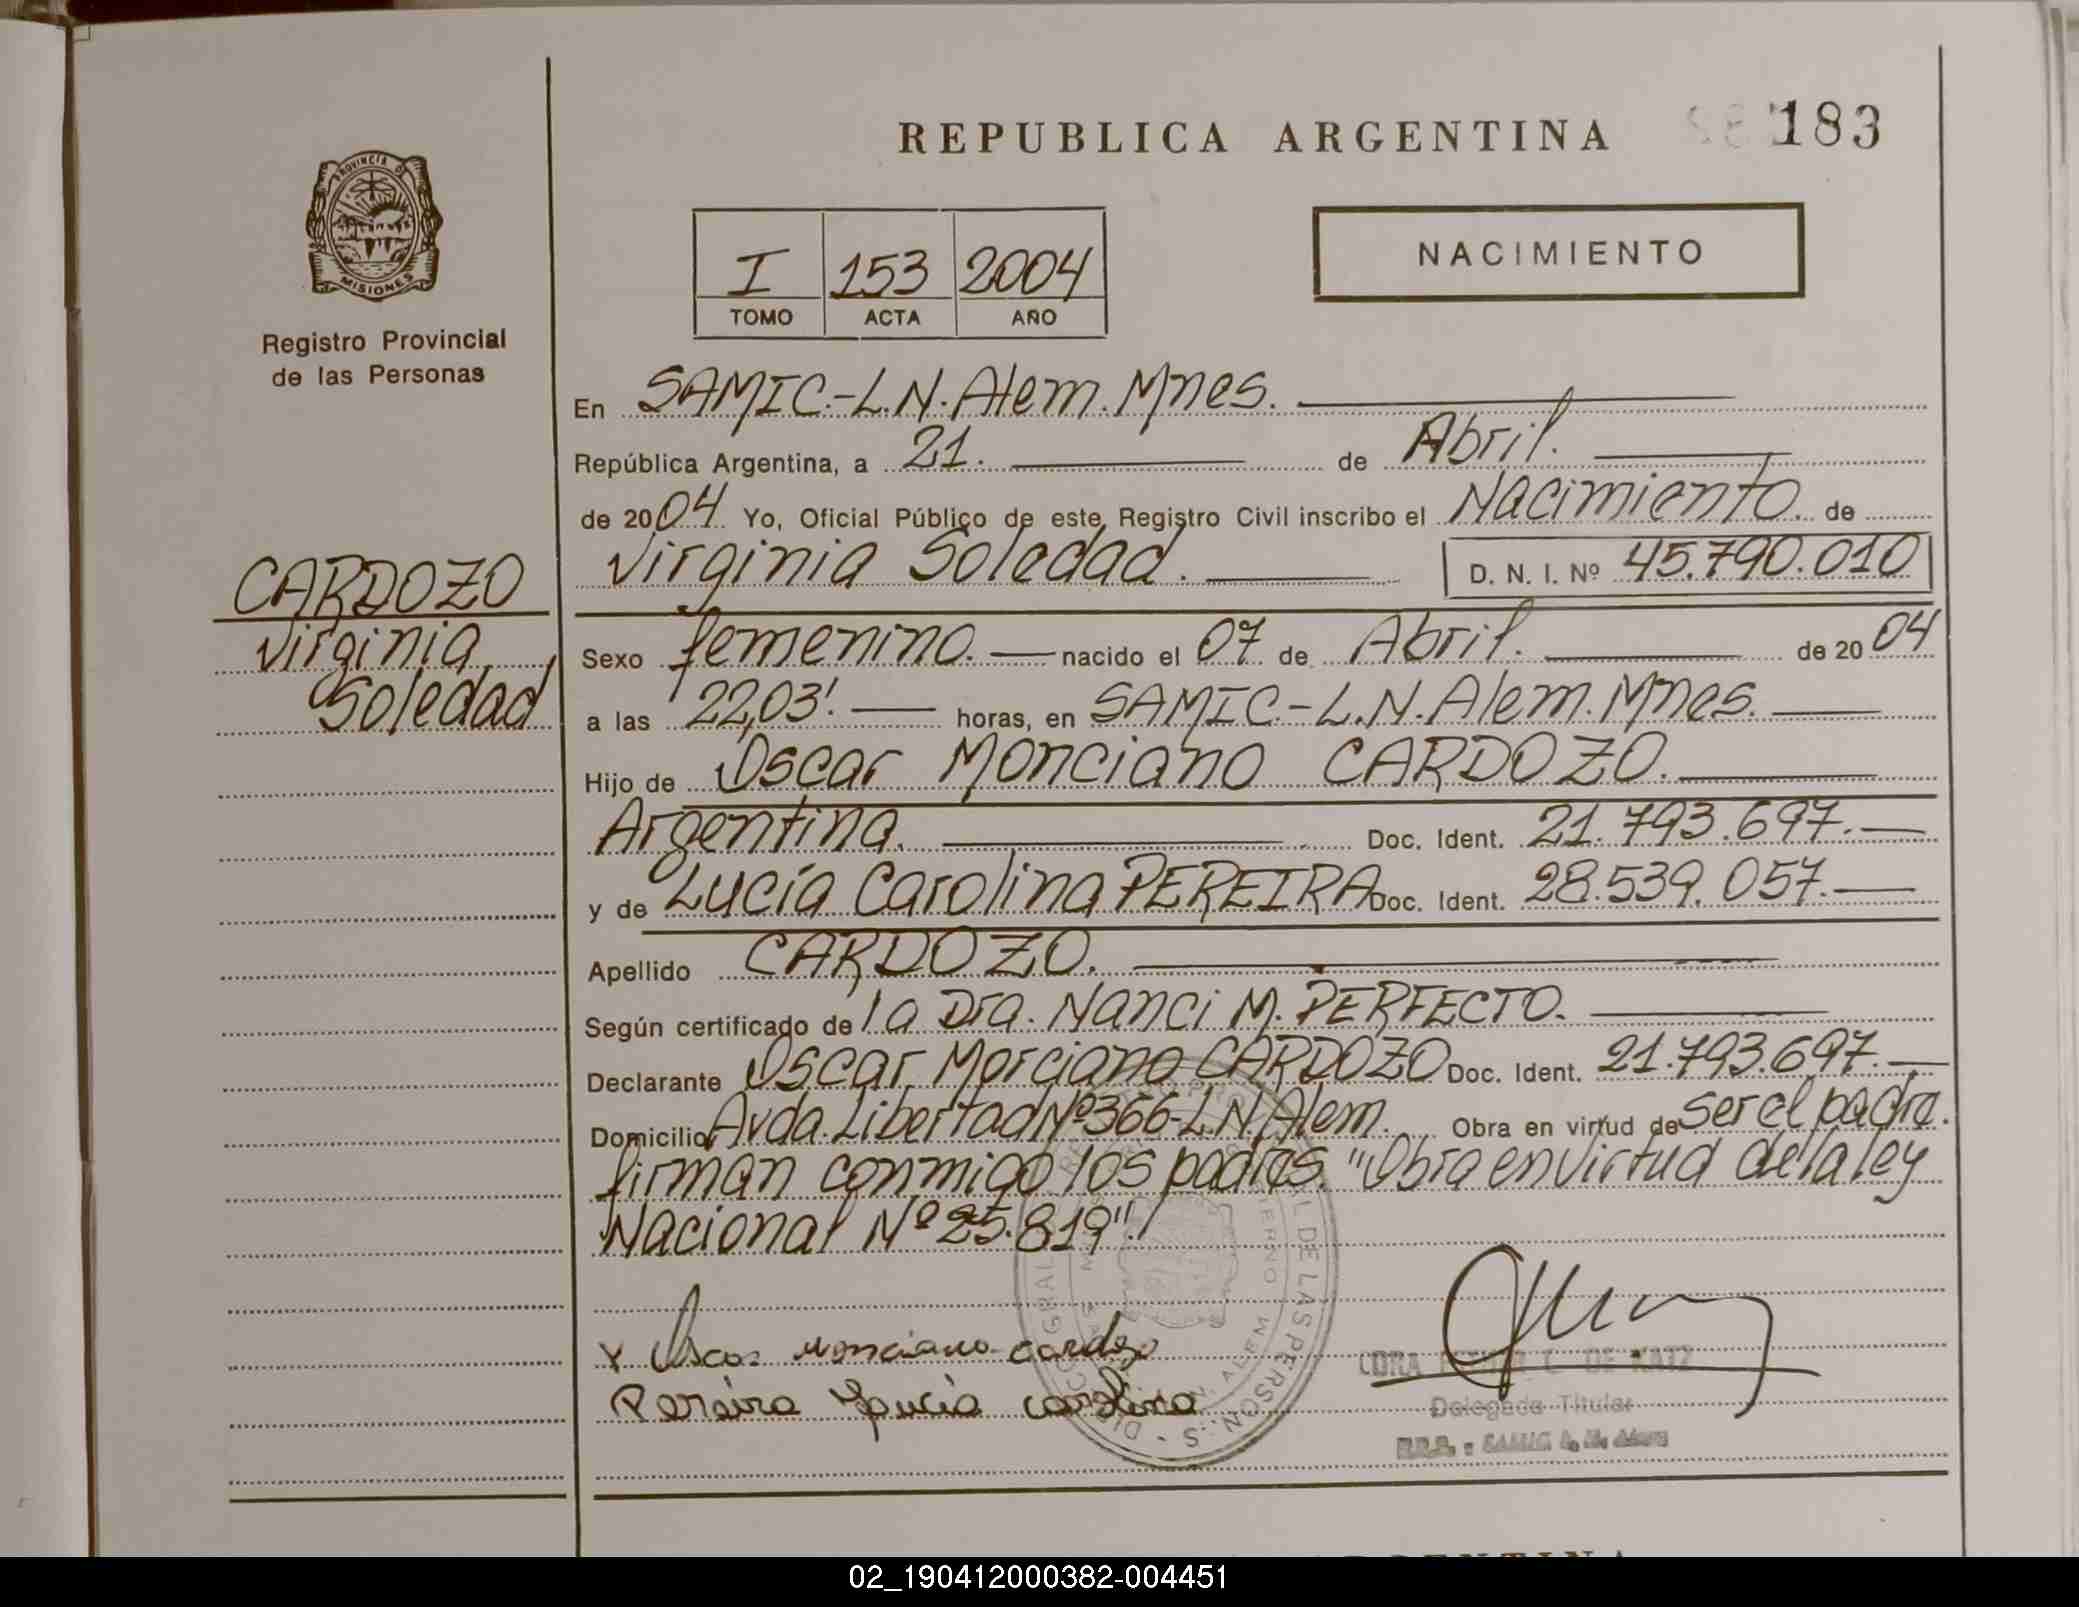 REPUBLICA ARGENTINA
183
PROVINCIA DE
MISIONES
Registro Provincial
de las Personas
I 153 2004
TOMO ACTA AÑO
NACIMIENTO
En SAMIC.-L.N.Alem.Mnes.
República Argentina, a 21. de Abril.
de 2004 Yo, Oficial Público de este Registro Civil inscribo el Nacimiento. de
Virginia Soledad. D. N. I. Nº 45.790.010
CARDOZO
Virginia
Soledad
Sexo femenino. nacido el 07 de Abril. de 2004
a las 22,03'. horas, en SAMIC.-L.N.Alem.Mnes.
Hijo de Oscar Monciano CARDOZO.
Argentina. Doc. Ident. 21.793.697.
y de Lucía Carolina PEREIRA Doc. Ident. 28.539.057.
Apellido CARDOZO.
Según certificado de la Dra. Nanci M. PERFECTO.
Declarante Oscar Morciano CARDOZO Doc. Ident. 21.793.697.
Domicilio Avda. Libertad Nº366-L.N.Alem. Obra en virtud de ser el padre.
firman conmigo los padres. "Obra en virtud de la ley
Nacional Nº 25.819".
Y Oscar Monciano cardozo
Pereira Lucia carolina
DE KATZ
Delegada Titular
02_190412000382-004451